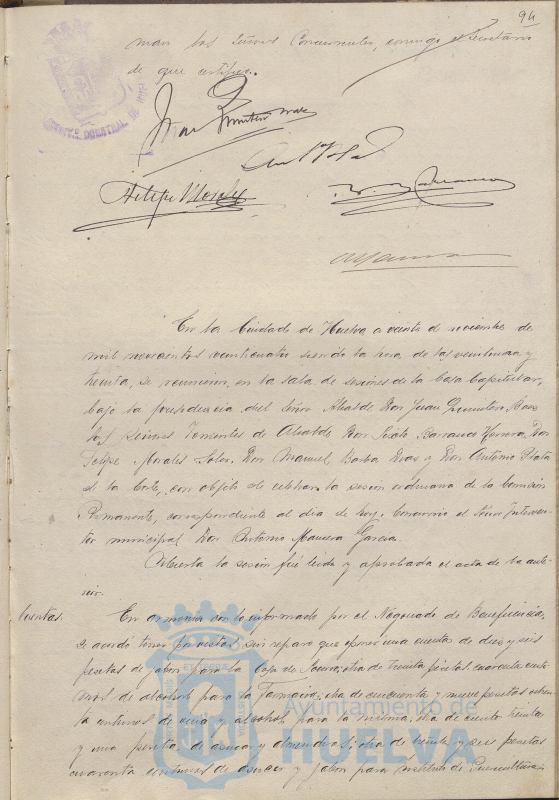 94
man los Señores Concurrentes, conmigo el Secretario
de que certifico.
Felipe Morales
En la Ciudad de Huelva a veinte de noviembre de
mil novecientos veinticuatro siendo la hora de las veintiuna y
treinta, se reunieron en la sala de sesiones de la Casa Capitular,
bajo la presidencia del Señor Alcalde Don Juan Quintero Baez
los Señores Tenientes de Alcalde Don Sixto Barranco Herrera, Don
Felipe Morales Soler, Don Manuel Barba Diaz y Don Antonio Plata
de la Corte, con objeto de celebrar la sesión ordinaria de la Comisión
Permanente, correspondiente al día de hoy. Concurrio el Señor Interven
tor municipal Don Antonio Garcia.
Abierta la sesión fué leida y aprobada el acta de la ante-
rior.
Cuentas.
En armonia con lo informado por el Negociado de Beneficencia,
se acordó tener por vistas sin reparo que oponer una cuenta de diez y seis
pesetas de jabon para la Casa de Socorro; otra de treinta pesetas cuarenta centi
mos de alcohol para la Farmacia; otra de cincuenta y nueve pesetas
centimos de y alcohol para la misma; otra de ciento treinta
y una pesetas de azucar y almendras; otra de treinta y seis pesetas
cuarenta centimos de azucar y jabon para Instituto de Puericultura
Ayuntamiento de
HUELVA